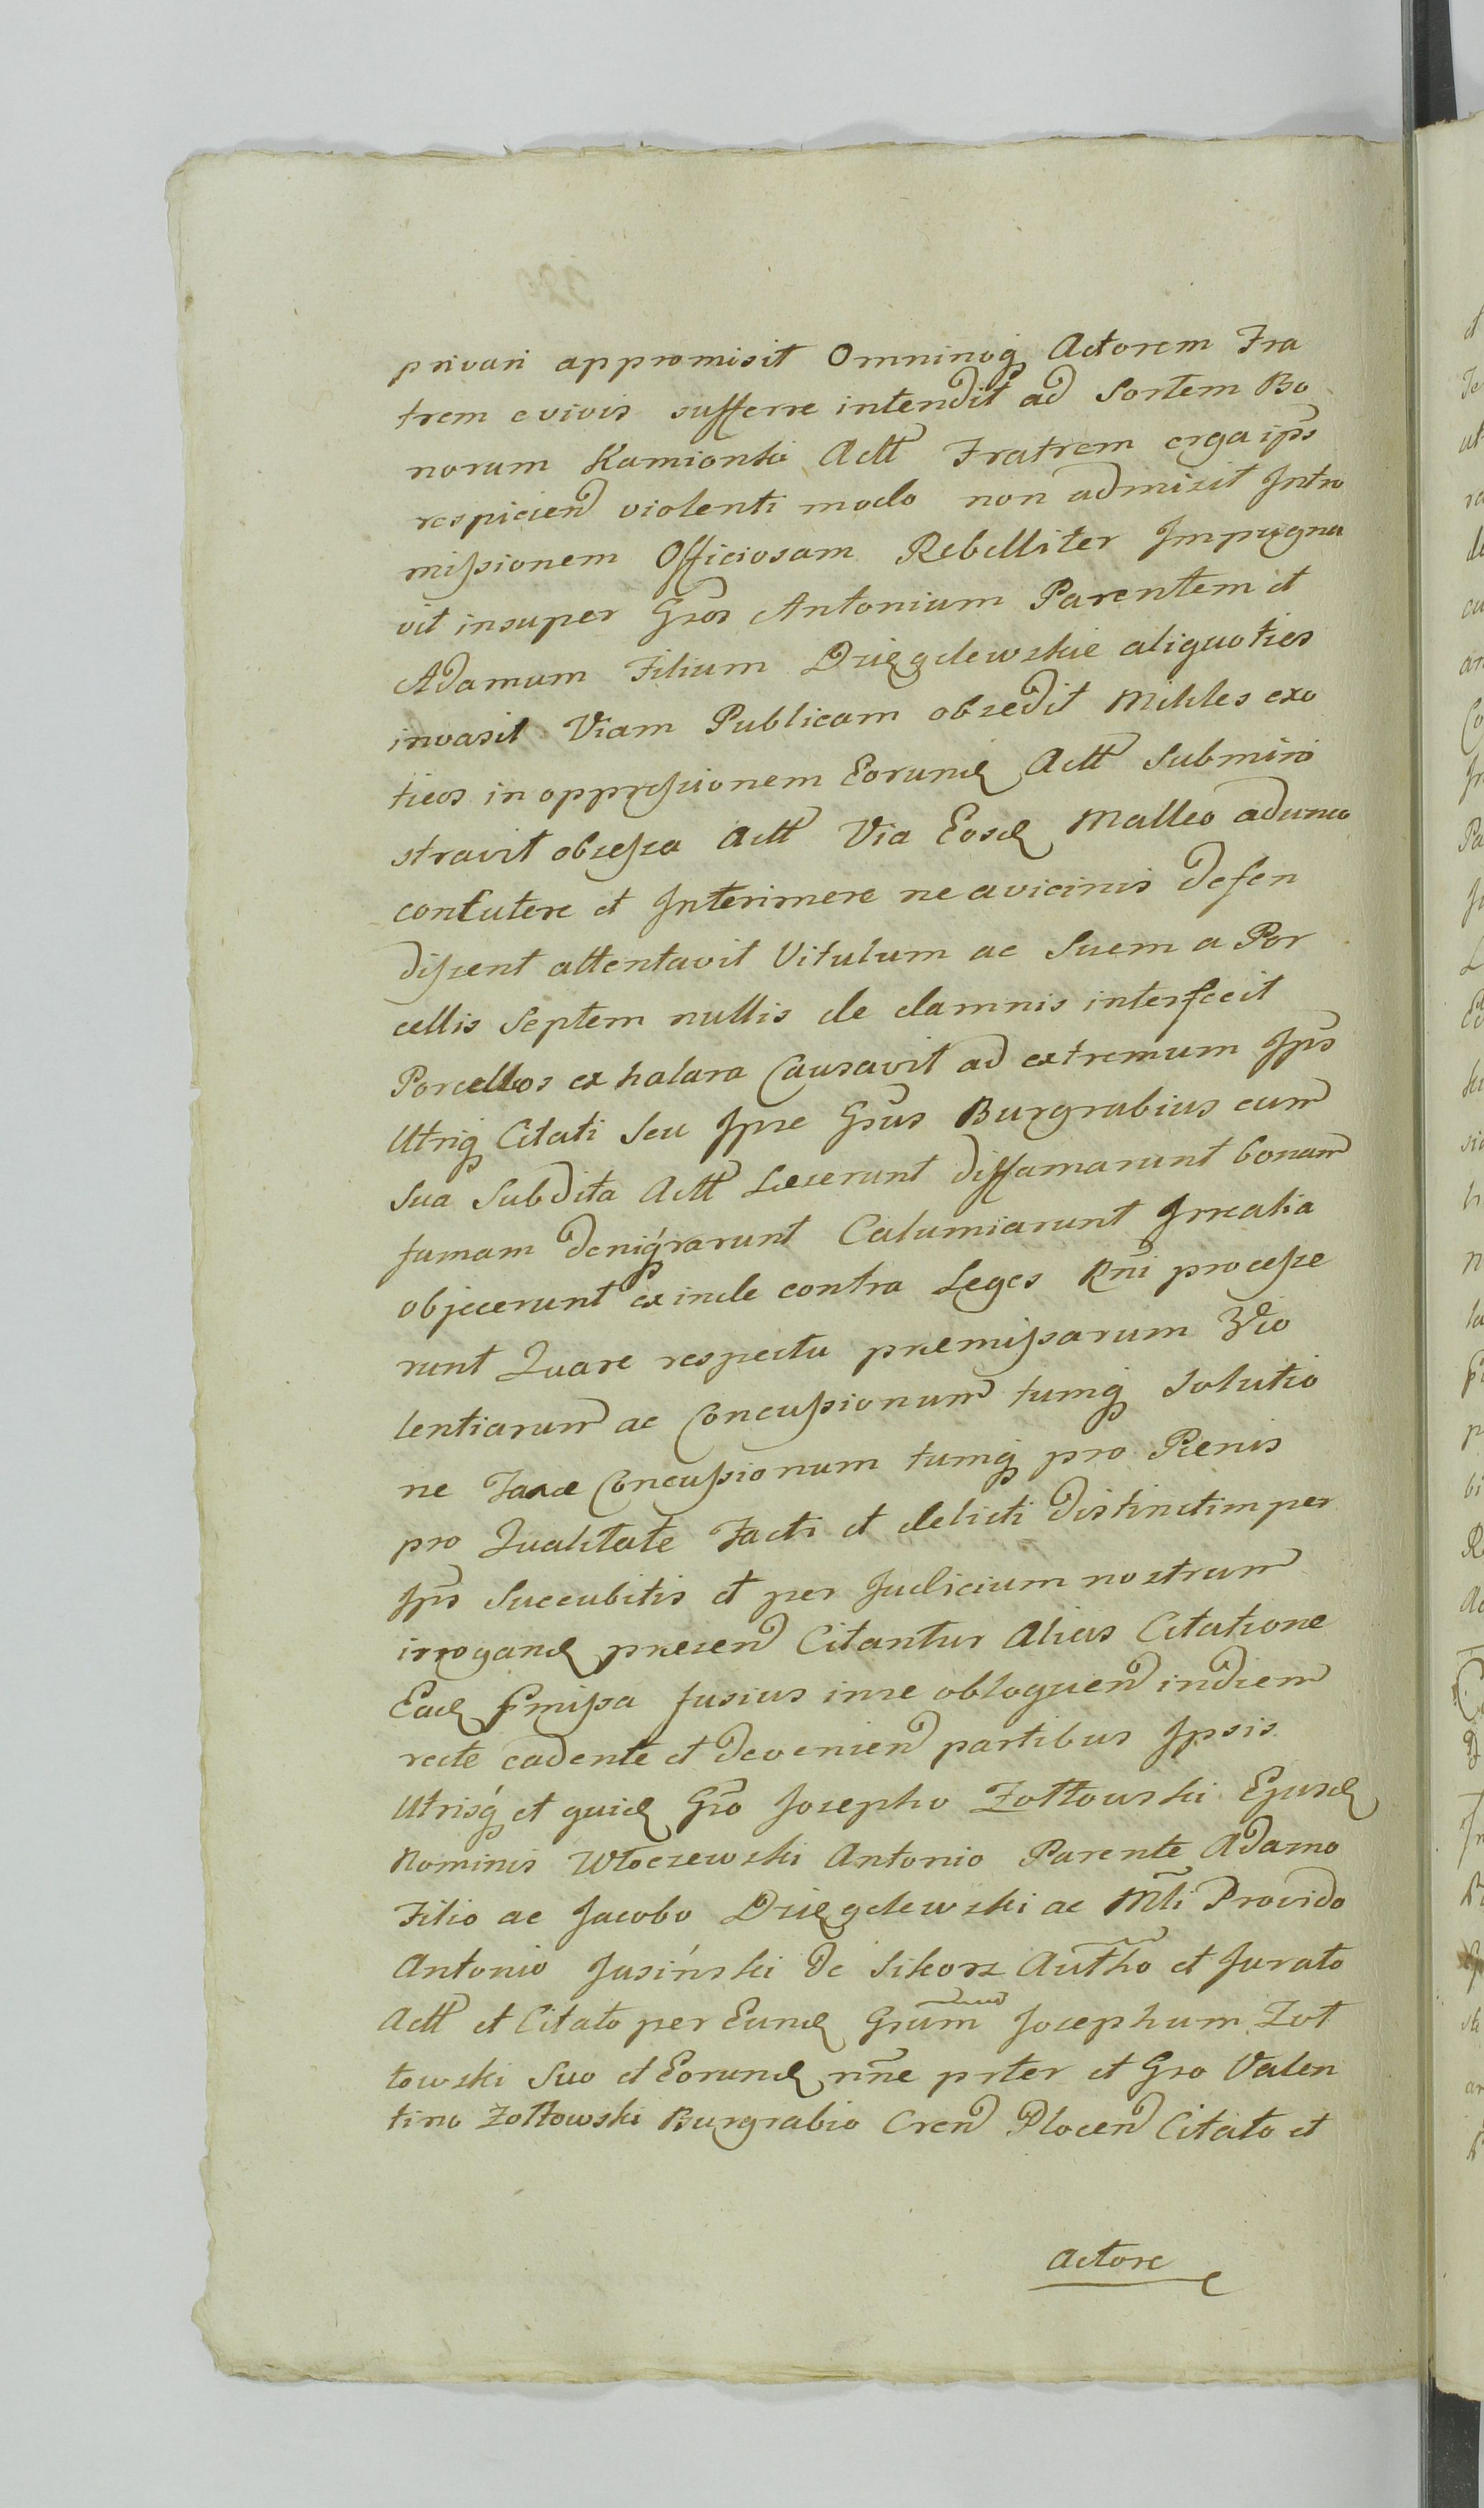 privari appromisit Omninoq Actorem Fra
trem e vivis sufferre intendit ad Sortem Bo
norum Kamionki Actt Fratrem erga ips
respiciend violenti modo non admisit Intro
missionem Officiosam Rebelliter Impugna
vit insuper Gsos Antonium Parentem et
Adamum Filium Dziegelewskie aliquoties
invasit Viam Publicam obsedit Milites exo
ticos in oppressionem Eorund Actt Submini
stravit obsessa Actt Via Eosd Malleo adunco
contutere et Interimere ne a vicinis defen
dissent attentavit Vitulum ac Suem a Por
cellis Septem nullis de damnis interfecit
Porcellos exhalara Causavit ad extremum Ips
Utriq Citati Seu Ipse Gsus Burgrabius cum
Sua Subdita Actt Læserunt diffamarunt bonam
famam denigrarunt Calumiarunt Irrealia
objecerunt exinde contra Leges Rni processe
runt Quare respectu præmissarum Vio
lentiarum ac Concussionum tumq Solutio
ne Taxæ Concussionum tumq pro Pænis
pro Qualitate Facti et delicti distinctim per
Ips Succubitis et per Judicium nostrum
irrogand præsend Citantur Alias Citatione
Ead Pmissa fusius in se obloquend in diem
recte cadente et deveniend partibus Ipsis
Utrisq et quid Gso Josepho Zołtowski Ejusd
Nominis Włoczewski Antonio Parente Adamo
Filio ac Jacobo Dziegelewski ac Mli Provido
Antonio Jasiński de Sikorz Autho et Jurato
Actt et Citato per Eund Gsum Josephum Zoł
towski Suo et Eorund nne prter et Gso Valen
tino Zołtowski Burgrabio Cren Plocen Citato et
Actore